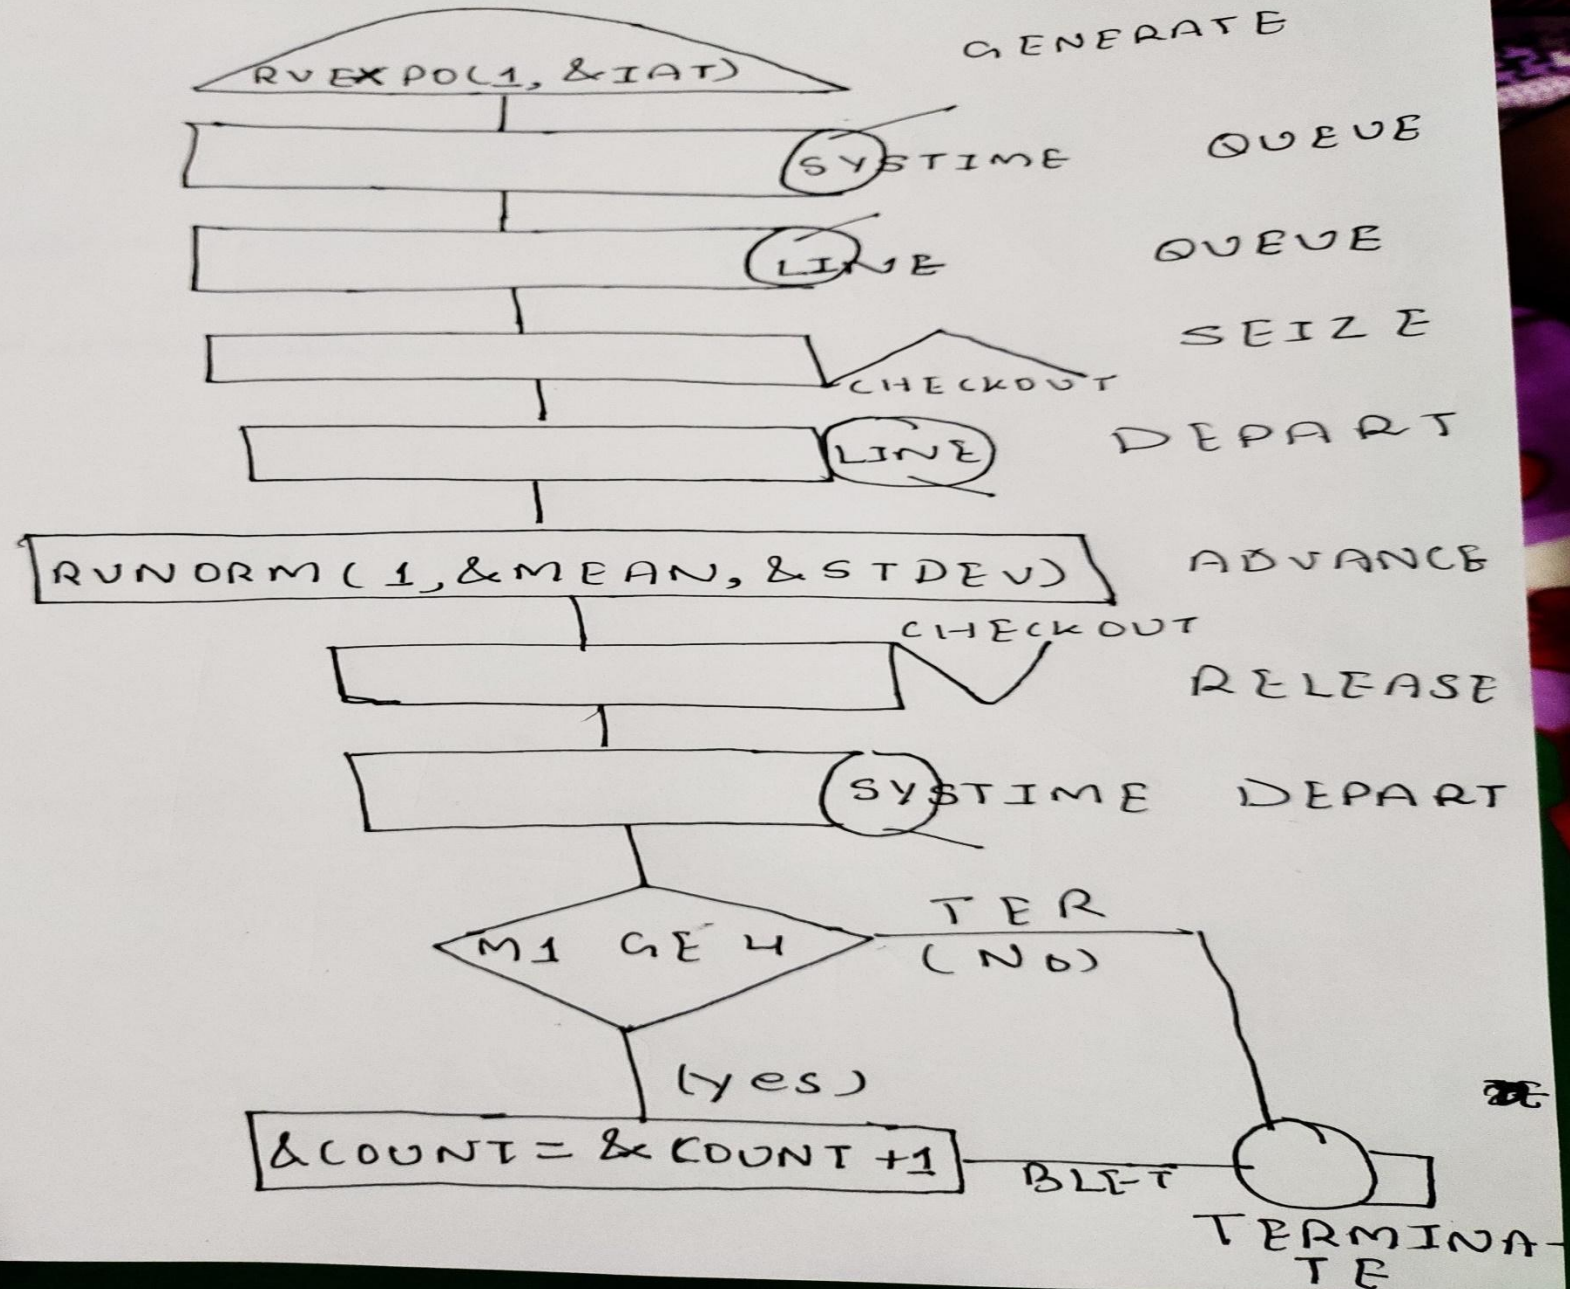 RVEXPO(1, &IAT) GENERATE
SYSTIME QUEUE
LINE QUEUE
SEIZE
CHECKOUT
LINE DEPART
RVNORM(1,&MEAN, &STDEV) ADVANCE
CHECKOUT
RELEASE
SYSTIME DEPART
TER
M1 GE 4
(NO)
(yes)
&COUNT = & COUNT +1
BLET
TERMINA-
TE